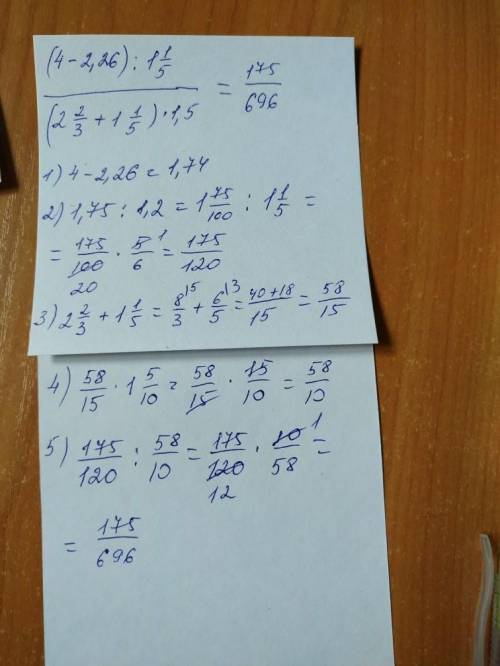 (4 - 2,26) : 1 1/5
(2 2/3 + 1 1/5) · 1,5
= 175/696
1) 4 - 2,26 = 1,74
2) 1,75 : 1,2 = 1 75/100 : 1 1/5 =
= 175/100 · 5/6 1 = 175/120
20
3) 2 2/3 + 1 1/5 = 8/3 15 + 6/5 13 = 40+18/15 = 58/15
4) 58/15 · 1 5/10 = 58/15 · 15/10 = 58/10
5) 175/120 : 58/10 = 175/120 · 10/58 1 =
12
= 175/696